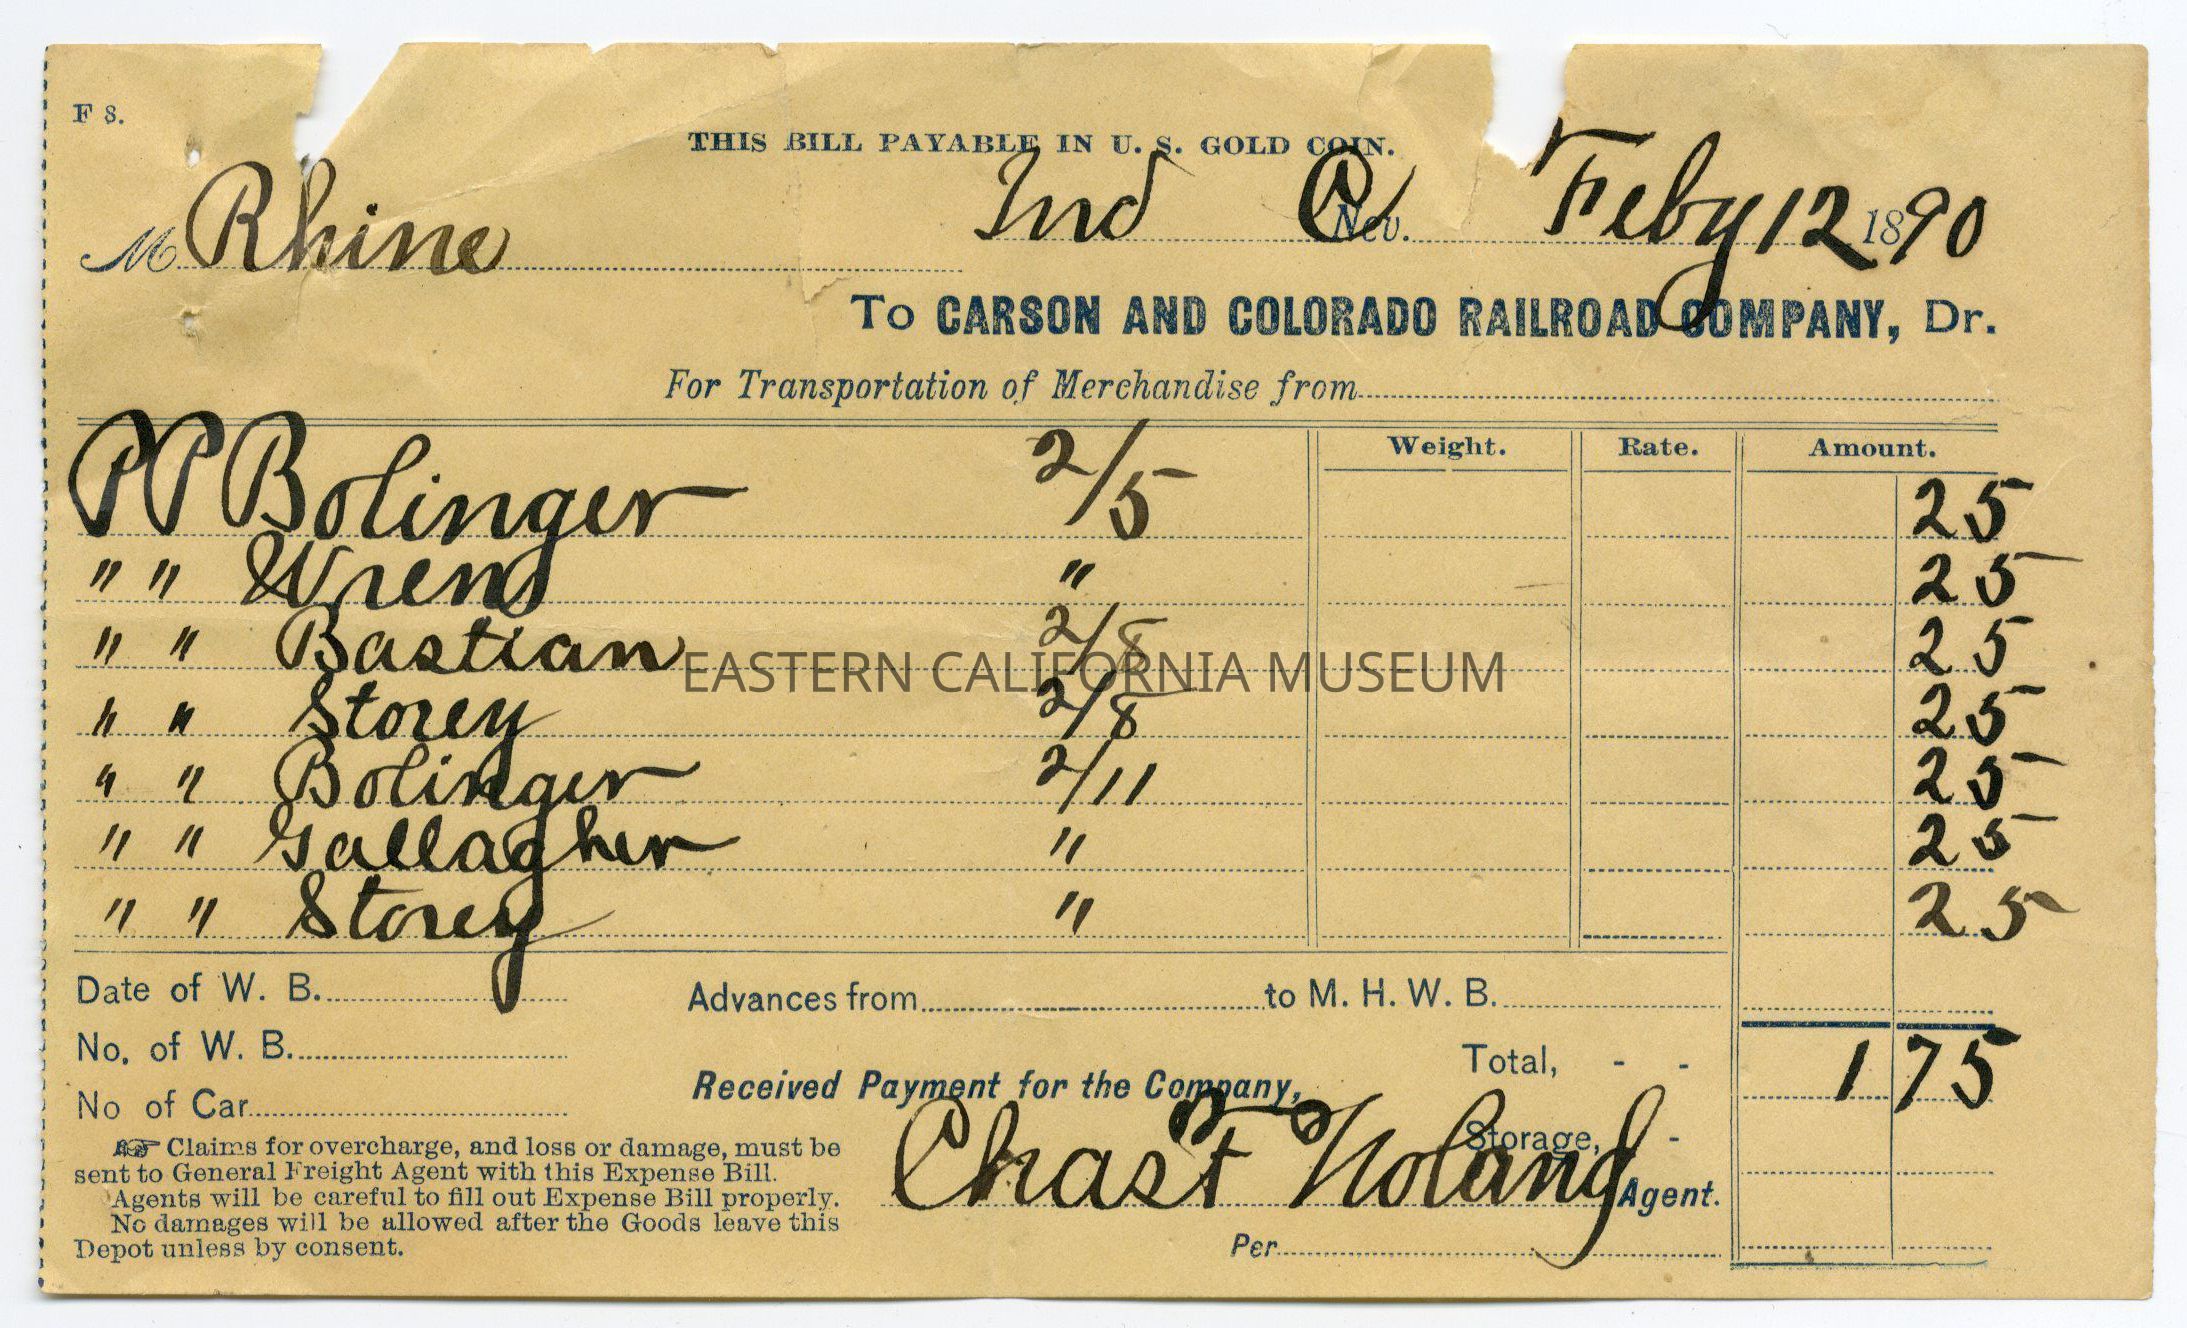 F 8.
THIS BILL PAYABLE IN U. S. GOLD COIN.
Ind Nev. Feby 12 1890
M Rhine
To CARSON AND COLORADO RAILROAD COMPANY, Dr.
For Transportation of Merchandise from
Weight. Rate. Amount.
PP Bolinger 2/5 25
" " Wrenn " 25
" " Bastian 2/8 25
EASTERN CALIFORNIA MUSEUM
" " Storey 2/8 25
" " Bolinger 2/11 25
" " Gallagher " 25
" " Storey " 25
Date of W. B. Advances from to M. H. W. B.
No. of W. B. Total, - - 1 75
No of Car Received Payment for the Company,
Storage, -
Chas F Noland Agent.
Per
☞ Claims for overcharge, and loss or damage, must be
sent to General Freight Agent with this Expense Bill.
Agents will be careful to fill out Expense Bill properly.
No damages will be allowed after the Goods leave this
Depot unless by consent.